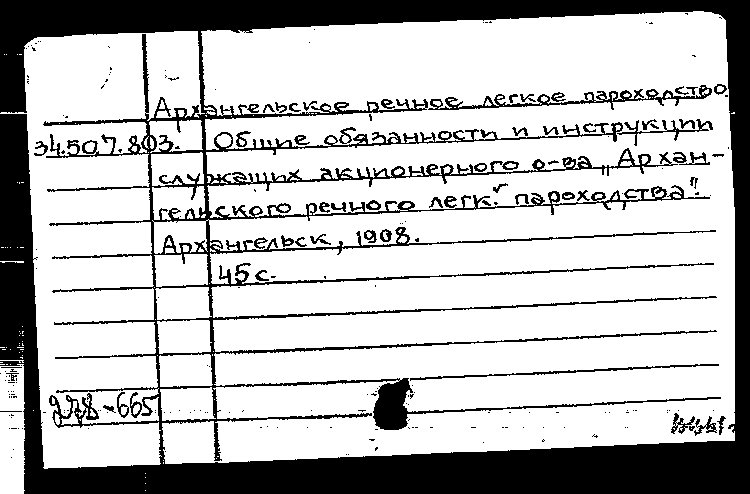 Архангельское речное легкое пароходство.
34.50.7.803. Общие обязанности и инструкции
служащих акционерного о-ва „Архан-
гельского речного легк. пароходства".
Архангельск, 1908.
45 с.
278-665